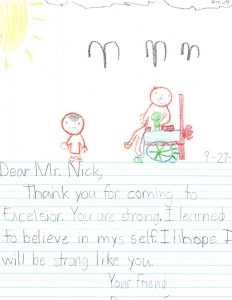 9-27-
Dear Mr. Nick,
Thank you for coming to
Excelsior. You are strong. I learned
to believe in mys self. I hope I
will be strong like you.
Your friend